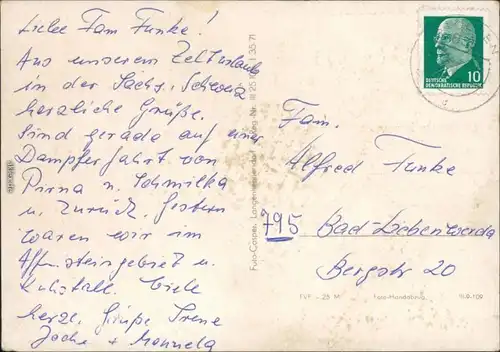 Liebe Fam Funke!
Aus unserem Zelturlaub
in der Sächs. Schweiz
herzliche Grüße.
Sind gerade auf einer
Dampferfahrt von
Pirna n. Schmilka
u. zurück. Gestern
waren wir im
Affensteingebiet u.
Kuhstall. Viele
herzl. Grüße Irene
Jochen + Manuela
Foto-Casper, Langenwetzendorf
III
35 71
DEUTSCHE
DEMOKRATISCHE REPUBLIK
10
Fam.
Alfred Funke
795 Bad Liebenwerda
Bergstr 20
EVP -,25 M
Foto-Handabzug